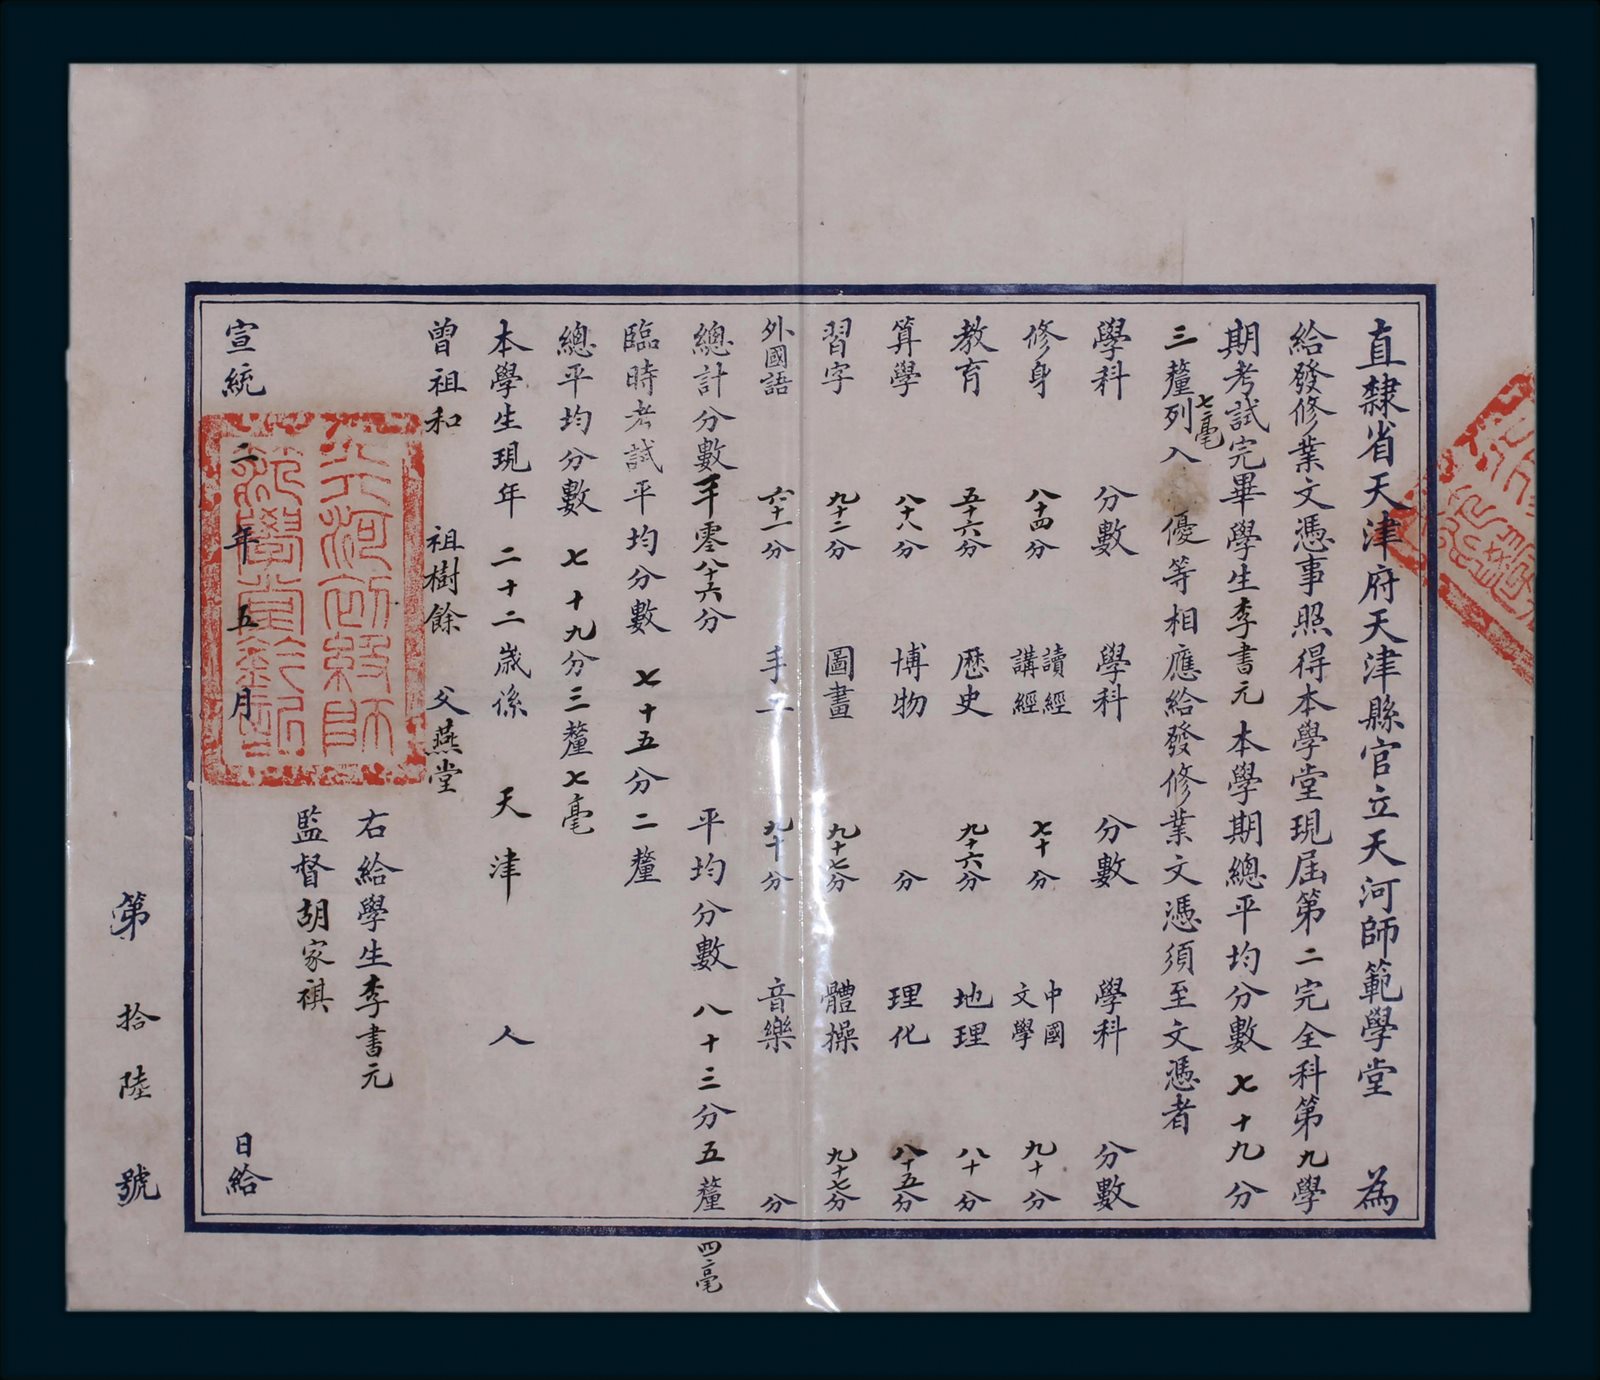 直隸省天津府天津縣官立天河師範學堂 為
給發修業文憑事照得本學堂現屆第二完全科第九學
期考試完畢學生李書元本學期總平均分數七十九分
三釐七毫列入 優等相應給發修業文憑須至文憑者
學科 分數 學科 分數 學科 分數
修身 八十四分 讀經講經 七十分 中國文學 九十分
教育 五十六分 歷史 九十六分 地理 八十分
算學 八十八分 博物 分 理化 八十五分
習字 九十二分 圖畫 九十七分 體操 九十七分
外國語 六十一分 手工 九十分 音樂 分
總計分數一千零八十六分 平均分數 八十三分五釐四毫
臨時考試平均分數 七十五分二釐
總平均分數 七十九分三釐七毫
本學生現年 二十二歲係 天津 人
曾祖和 祖樹餘 父燕堂
右給學生李書元
監督胡家祺
宣統二年五月 日給
第拾陸號
天河初級師
範學堂鈐記